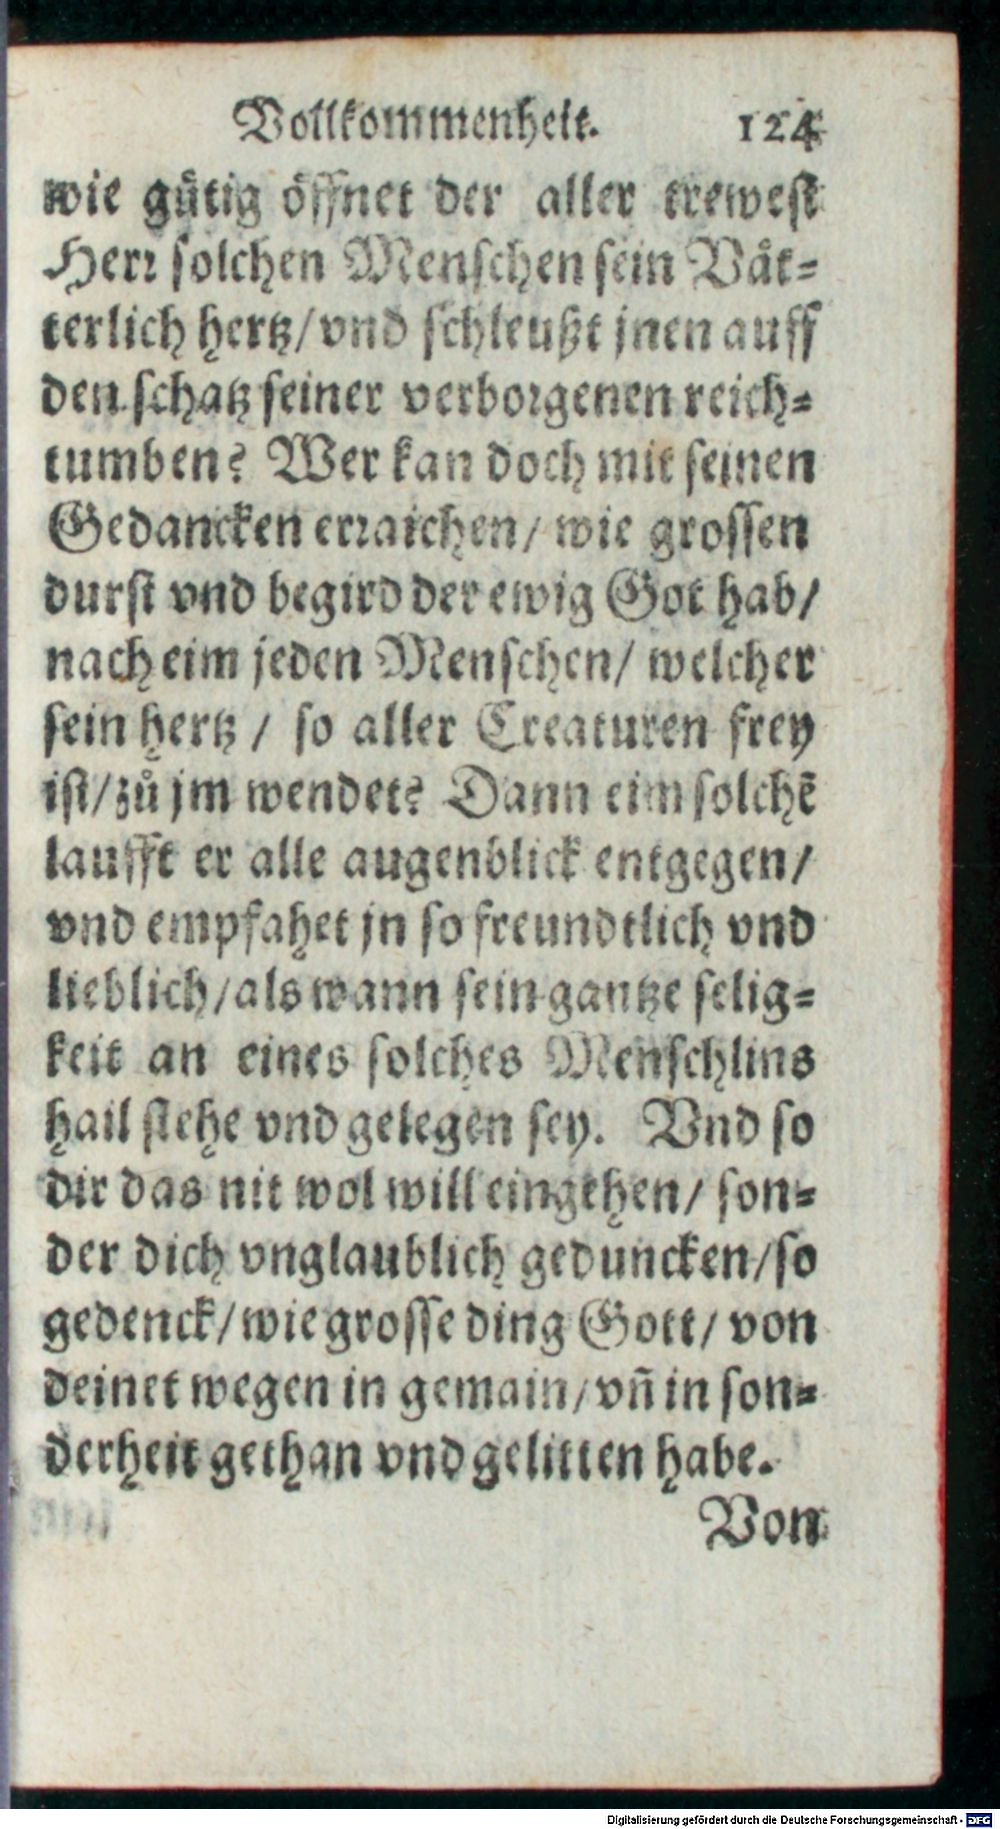 Vollkommenheit. 124
wie guͤtig oͤffnet der aller trewest
Herr solchen Menschen sein Vaͤt-
terlich hertz/ vnd schleußt jnen auff
den schatz seiner verborgenen reich-
tumben? Wer kan doch mit seinen
Gedancken erraichen/ wie grossen
durst vnd begird der ewig Got hab/
nach eim jeden Menschen/ welcher
sein hertz / so aller Creaturen frey
ist/ zuͦ jm wendet? Dann eim solchē
laufft er alle augenblick entgegen/
vnd empfahet jn so freundtlich vnd
lieblich/ als wann sein gantze selig-
keit an eines solches Menschlins
hail stehe vnd gelegen sey. Vnd so
dir das nit wol will eingehen/ son-
der dich vnglaublich geduncken/ so
gedenck/ wie grosse ding Gott/ von
deinet wegen in gemain/ vn̄ in son-
derheit gethan vnd gelitten habe.
Von
Digitalisierung gefördert durch die Deutsche Forschungsgemeinschaft - DFG